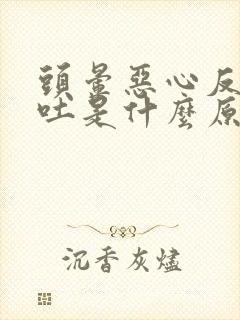 頭暈惡心反
吐是什麼原
沉香灰燼